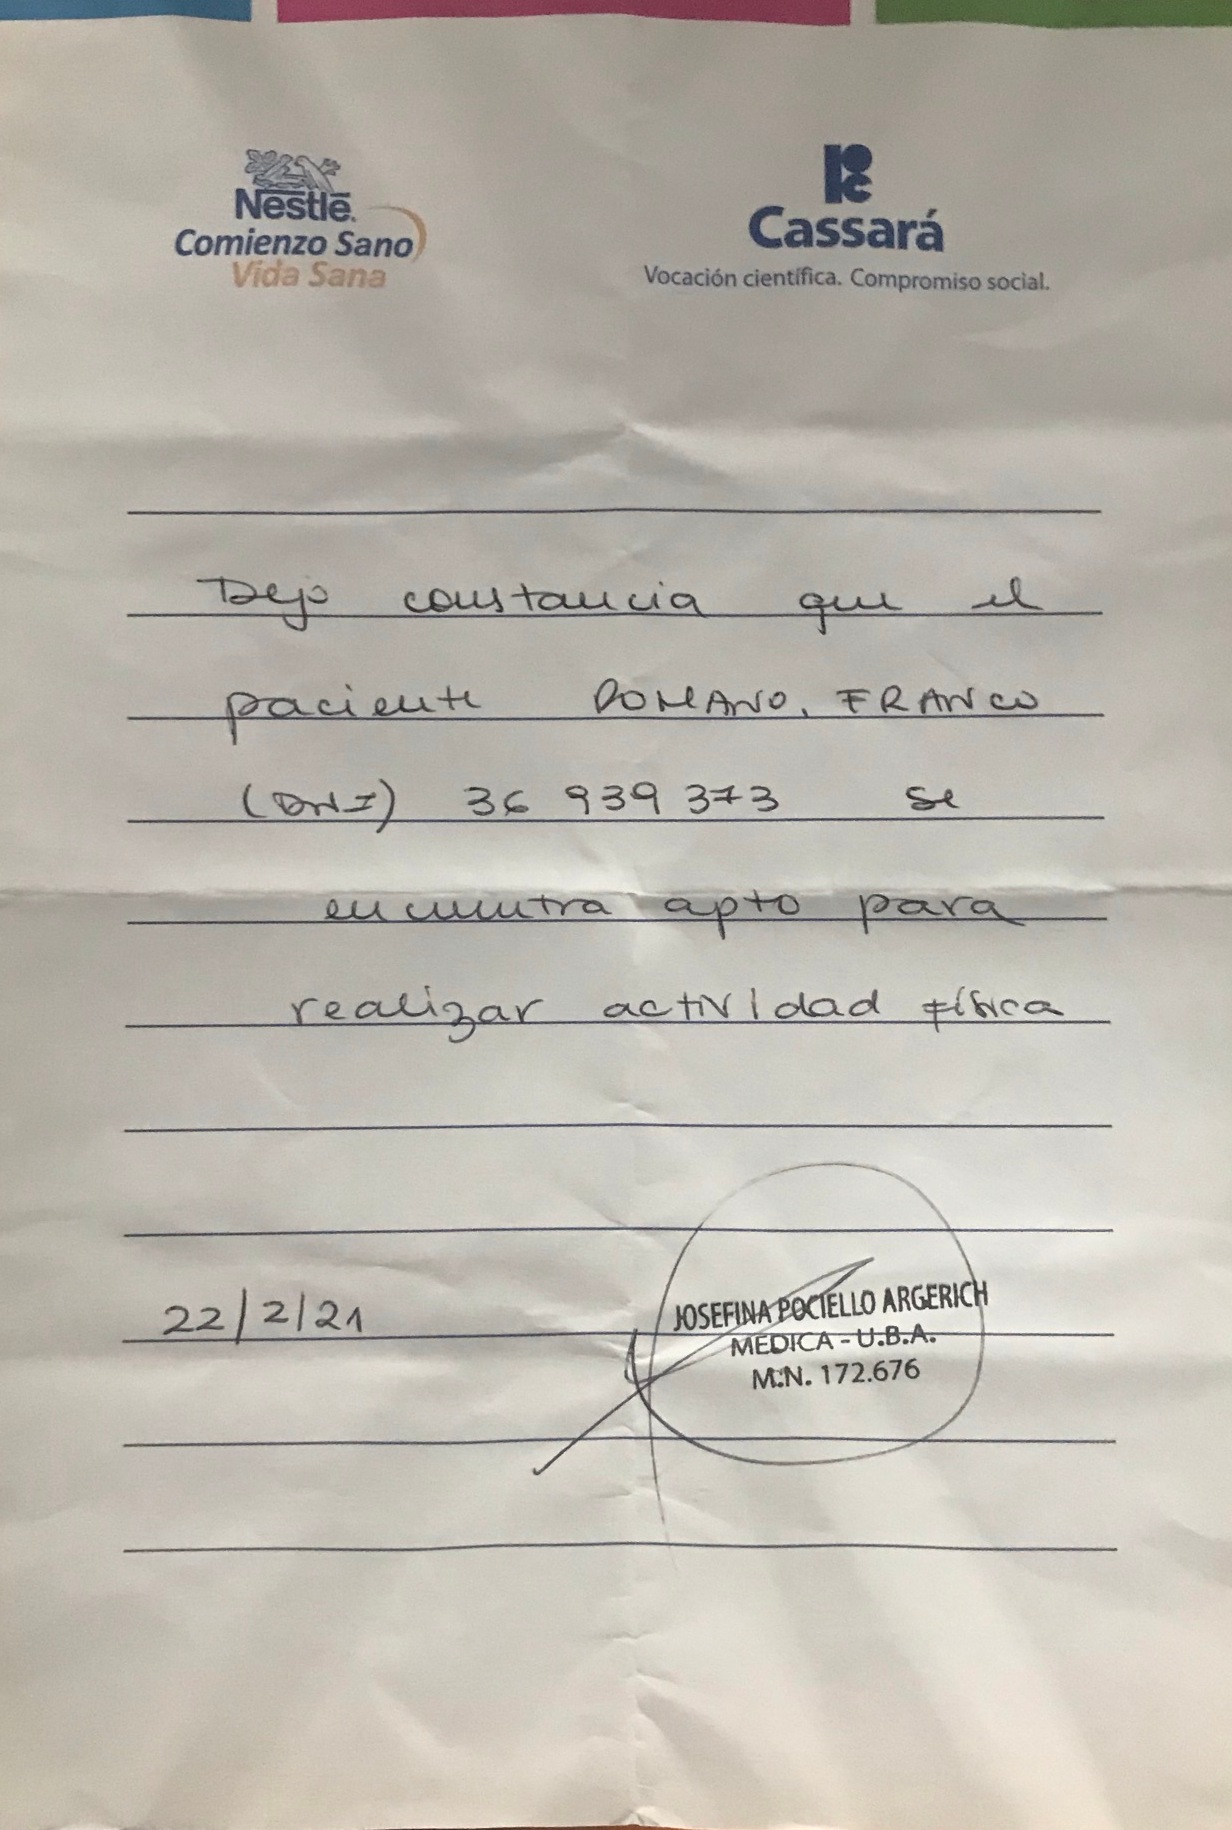 Nestlé.
Comienzo Sano
Vida Sana
Cassará
Vocación científica. Compromiso social.
Dejo constancia que el
paciente ROMANO, FRANCO
(DNI) 36 939 373 se
encuentra apto para
realizar actividad física
22/2/21
JOSEFINA POCIELLO ARGERICH
MEDICA - U.B.A.
M.N. 172.676